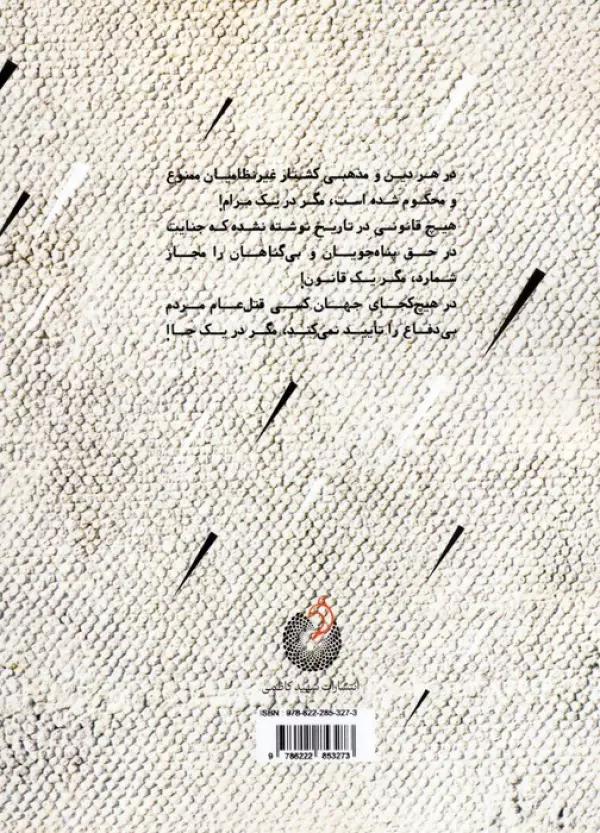 در هر دین و مذهبی کشتار غیرنظامیان ممنوع
و محکوم شده است، مگر در یک مرام!
هیچ قانونی در تاریخ نوشته نشده که جنایت
در حق پناه‌جویان و بی‌گناهان را مجاز
شمارد، مگر یک قانون!
در هیچ‌کجای جهان کسی قتل‌عام مردم
بی‌دفاع را تأیید نمی‌کند، مگر در یک جا!
انتشارات شهید کاظمی
ISBN : 978-622-285-327-3
9 786222 853273